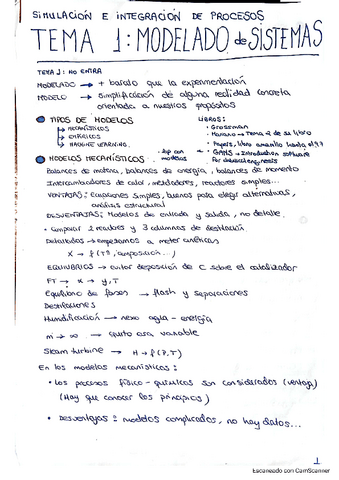 SIMULACIÓN E INTEGRACIÓN DE PROCESOS
TEMA 1: MODELADO de SISTEMAS
TEMA 1: NO ENTRA
MODELADO → + barato que la experimentación
MODELO → simplificación de alguna realidad concreta
orientada a nuestros propósitos
TIPOS DE MODELOS
↳ MECANÍSTICOS
↳ EMPÍRICOS
↳ MACHINE LEARNING
LIBROS:
• Grossman
• Mariano → Tema 2 de su libro
• Papers, libro amarillo hasta
• GAMS → Introduction software
For
MODELOS MECANÍSTICOS
zip con modelos
Balances de materia, balances de energía, balances de momento
Intercambiadores de calor, mezcladores, reactores simples...
VENTAJAS: Ecuaciones simples, buenos para elegir alternativas,
análisis estructural
DESVENTAJAS: Modelos de entrada y salida, no detalle.
• Comparar 2 reactores y 3 columnas de destilación
Detallados → empezamos a meter cinéticas
X → f(Tª, composición...)
EQUILIBRIOS → evitar deposición de C sobre el catalizador
FT → x → y, T
Equilibrio de fases → flash y separaciones
Destilaciones
Humidificación → nexo agua - energía
m → ∞ → quito esa variable
Steam turbine → H → f(P,T)
En los modelos mecanísticos:
• Los procesos físico-químicos son considerados (ventaja)
(Hay que conocer los principios)
• Desventajas: modelos complicados, no hay datos...
1
Escaneado con CamScanner